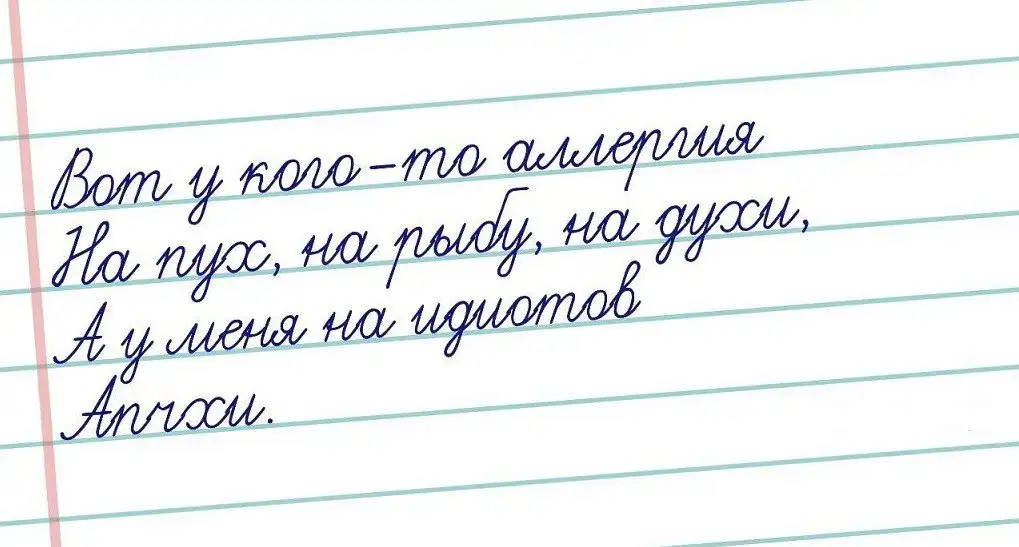 Вот у кого-то аллергия
На пух, на рыбу, на духи,
А у меня на идиотов
Апчхи.